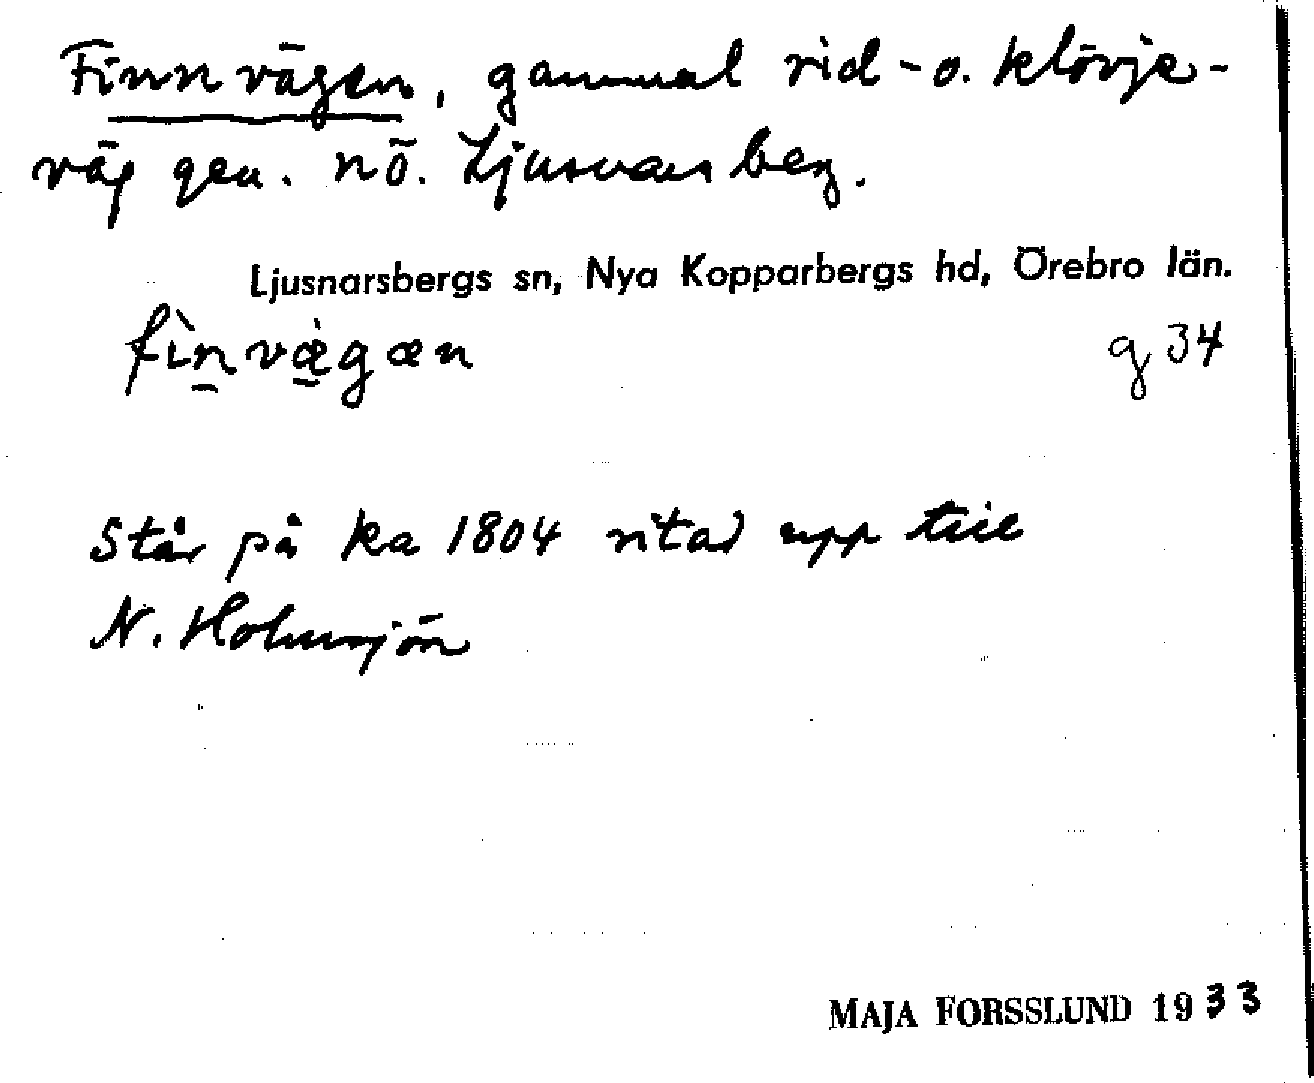 Finnvägen, gammal rid- o. klövje-
väg gen. nö. Ljusnarsberg.
Ljusnarsbergs sn, Nya Kopparbergs hd, Örebro län.
fìn̲væ̲̀gæn
g 34
Står på ka 1804 ritad upp till
N. Holmsjön
MAJA FORSSLUND 1933